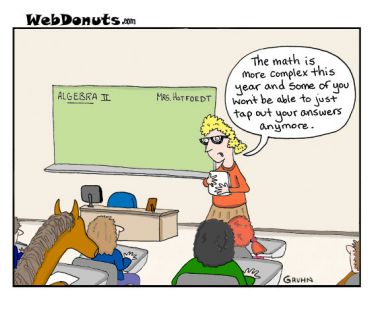 WebDonuts.com
ALGEBRA II
MRS. HOTFOEDT
The math is
more complex this
year and some of you
won't be able to just
tap out your answers
anymore.
GRUHN